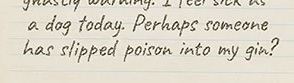 ghastly warning. I feel sick as
a dog today. Perhaps someone
has slipped poison into my gin?